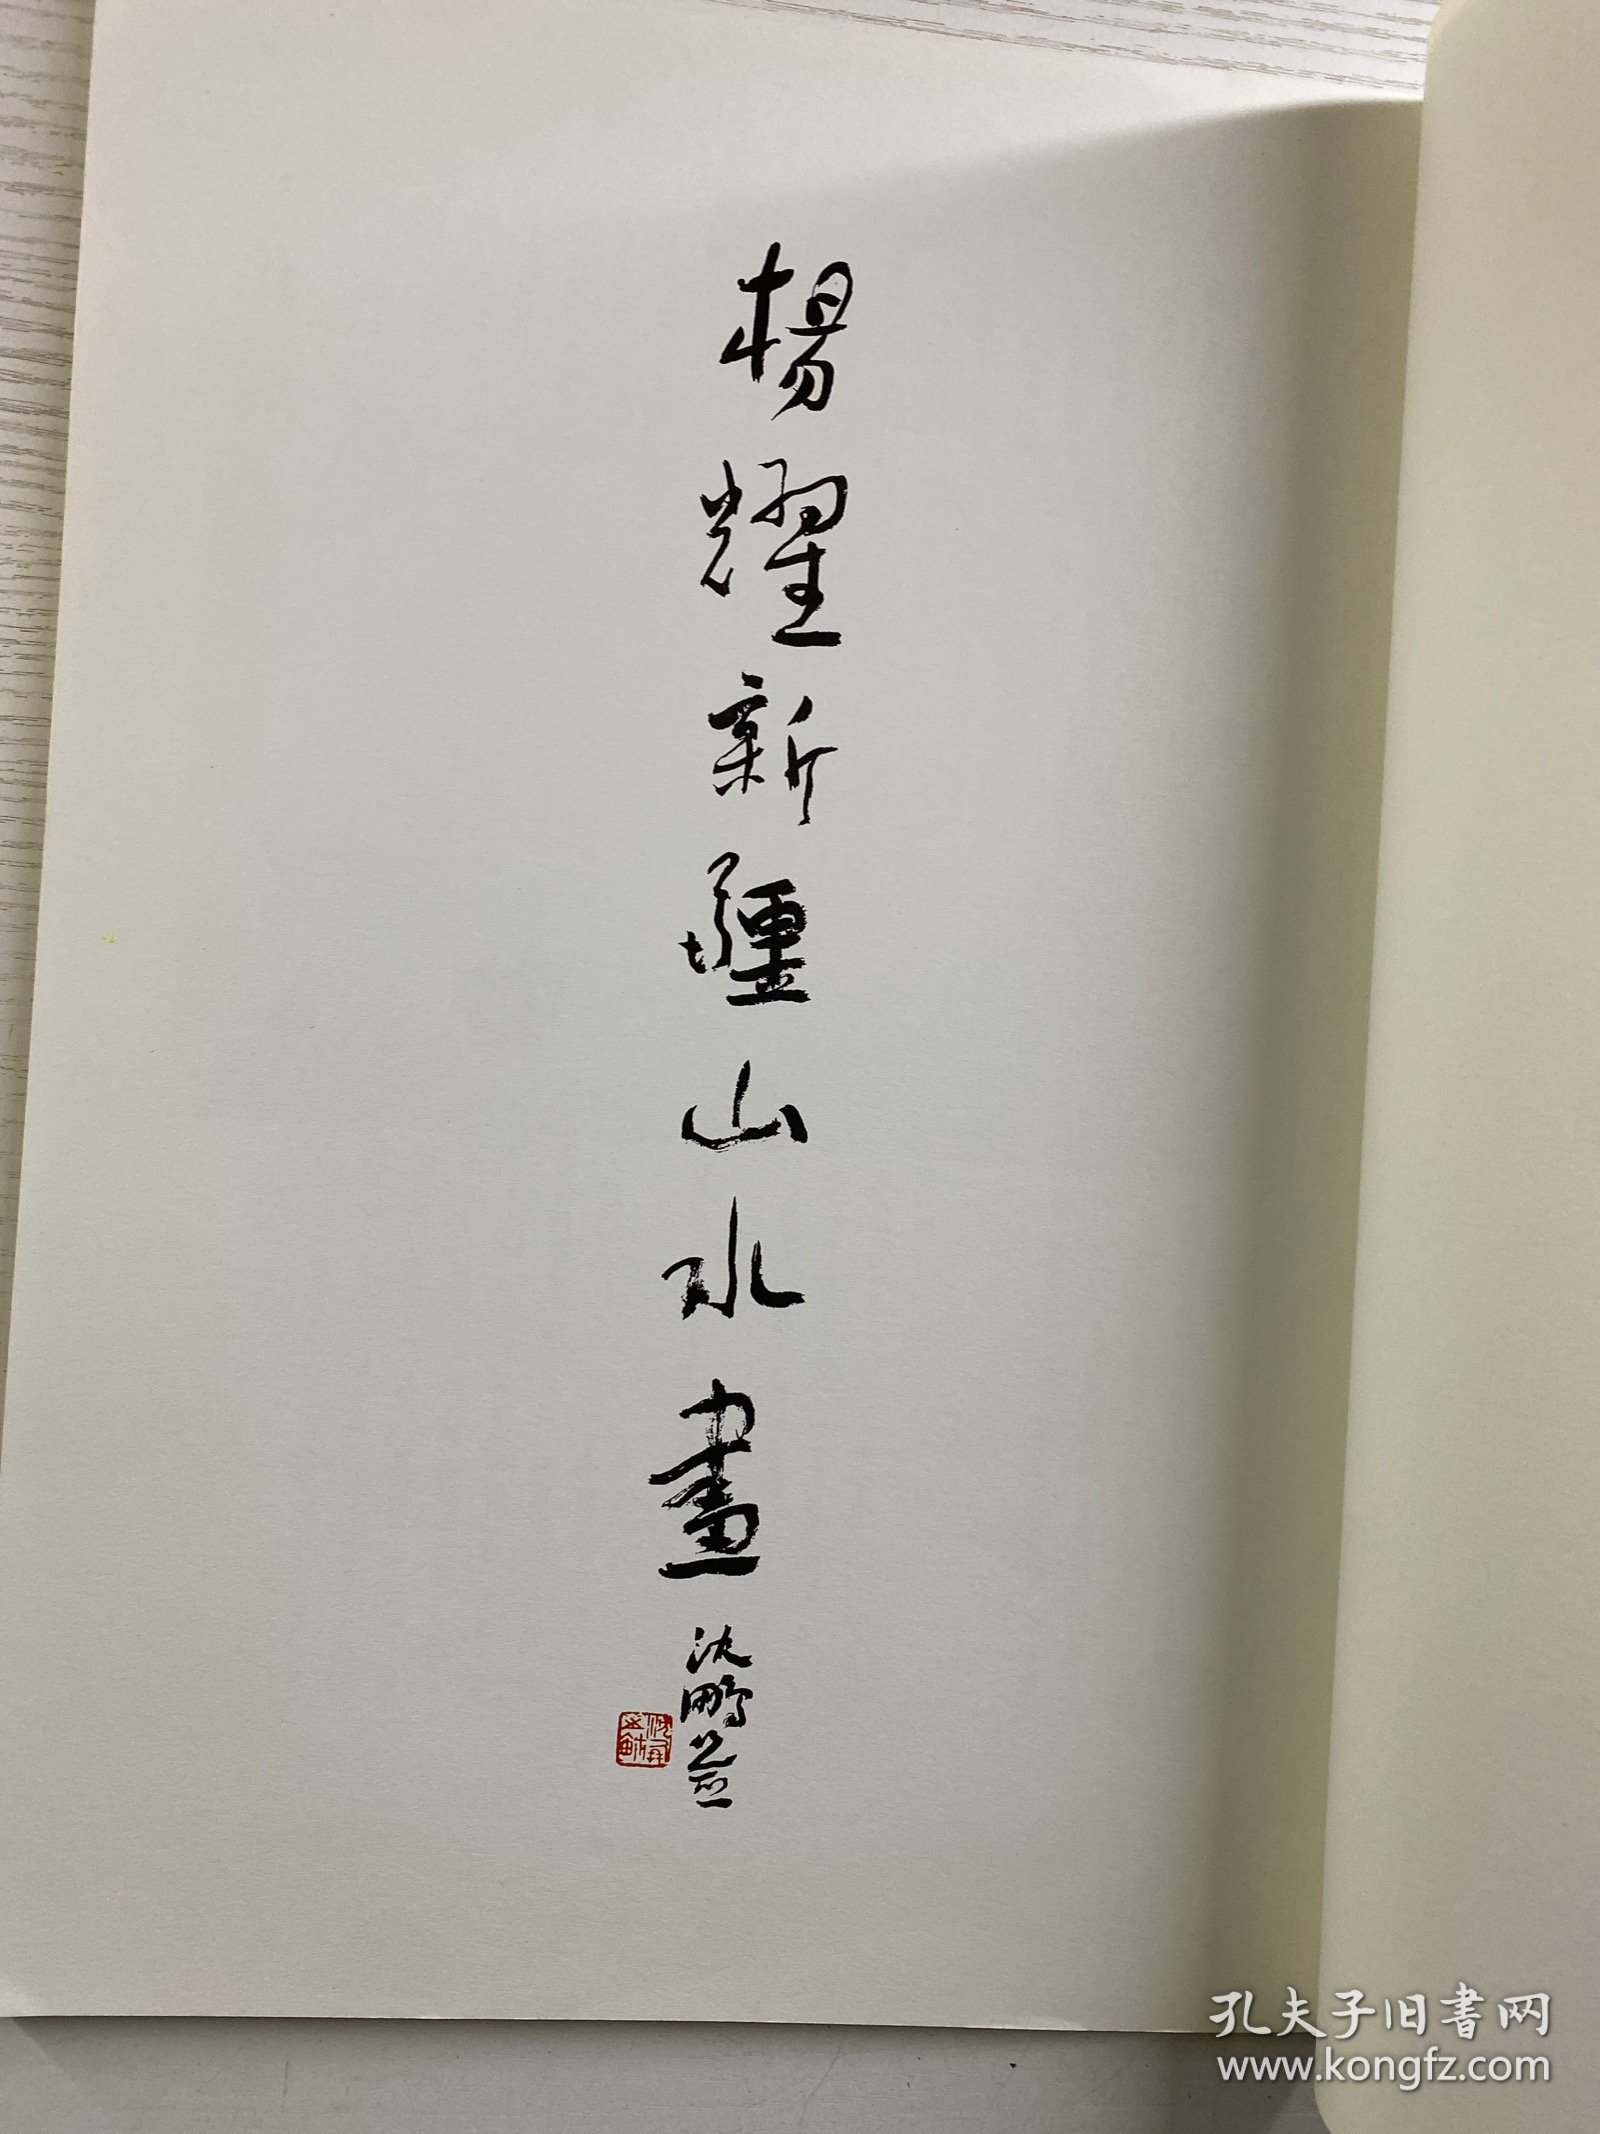 楊耀新疆山水畫
沈鵬
孔夫子旧書网
www.kongfz.com